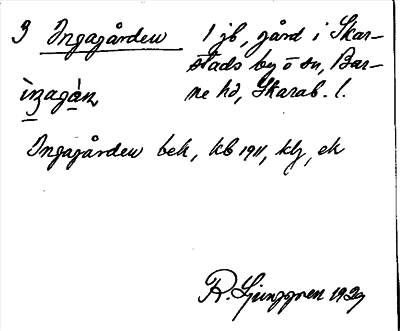 3 Ingagården 1 jb, gård i Skar-
stads by o sn, Bar-
ìngagán, ne hd, Skarab. l.
Ingagården bek, kb 1911, klj, ek
R. Ljunggren 1929